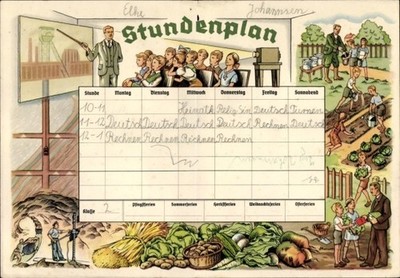 Elke Johannsen
Stundenplan
Stunde Montag Dienstag Mittwoch Donnerstag Freitag Sonnabend
10-11 Heimatk Relig Sin Deutsch Turnen
11-12 Deutsch Deutsch Deutsch Deutsch Rechnen Deutsch
12-1 Rechnen Rechnen Rechnen Rechnen
Klasse 2 Pfingstferien Sommerferien Herbstferien Weihnachtsferien Osterferien